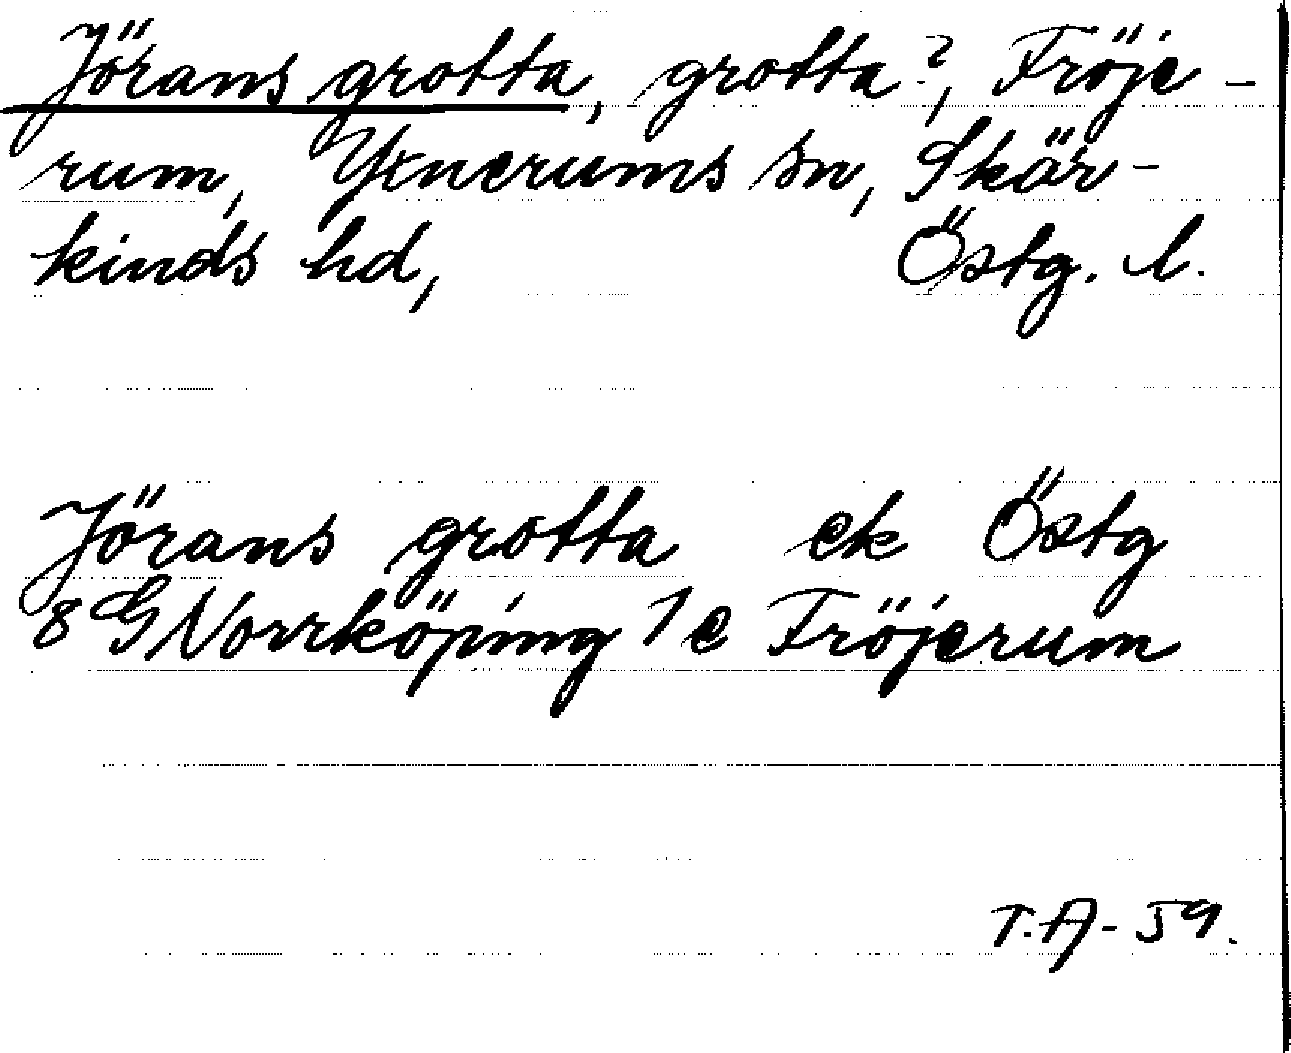 Jörans grotta, grotta?, Fröje-
rum, Yxnerums sn, Skär-
kinds hd, Östg. l.
Jörans grotta ek Östg
8 G Norrköping 1 e Fröjerum
T.A-59.